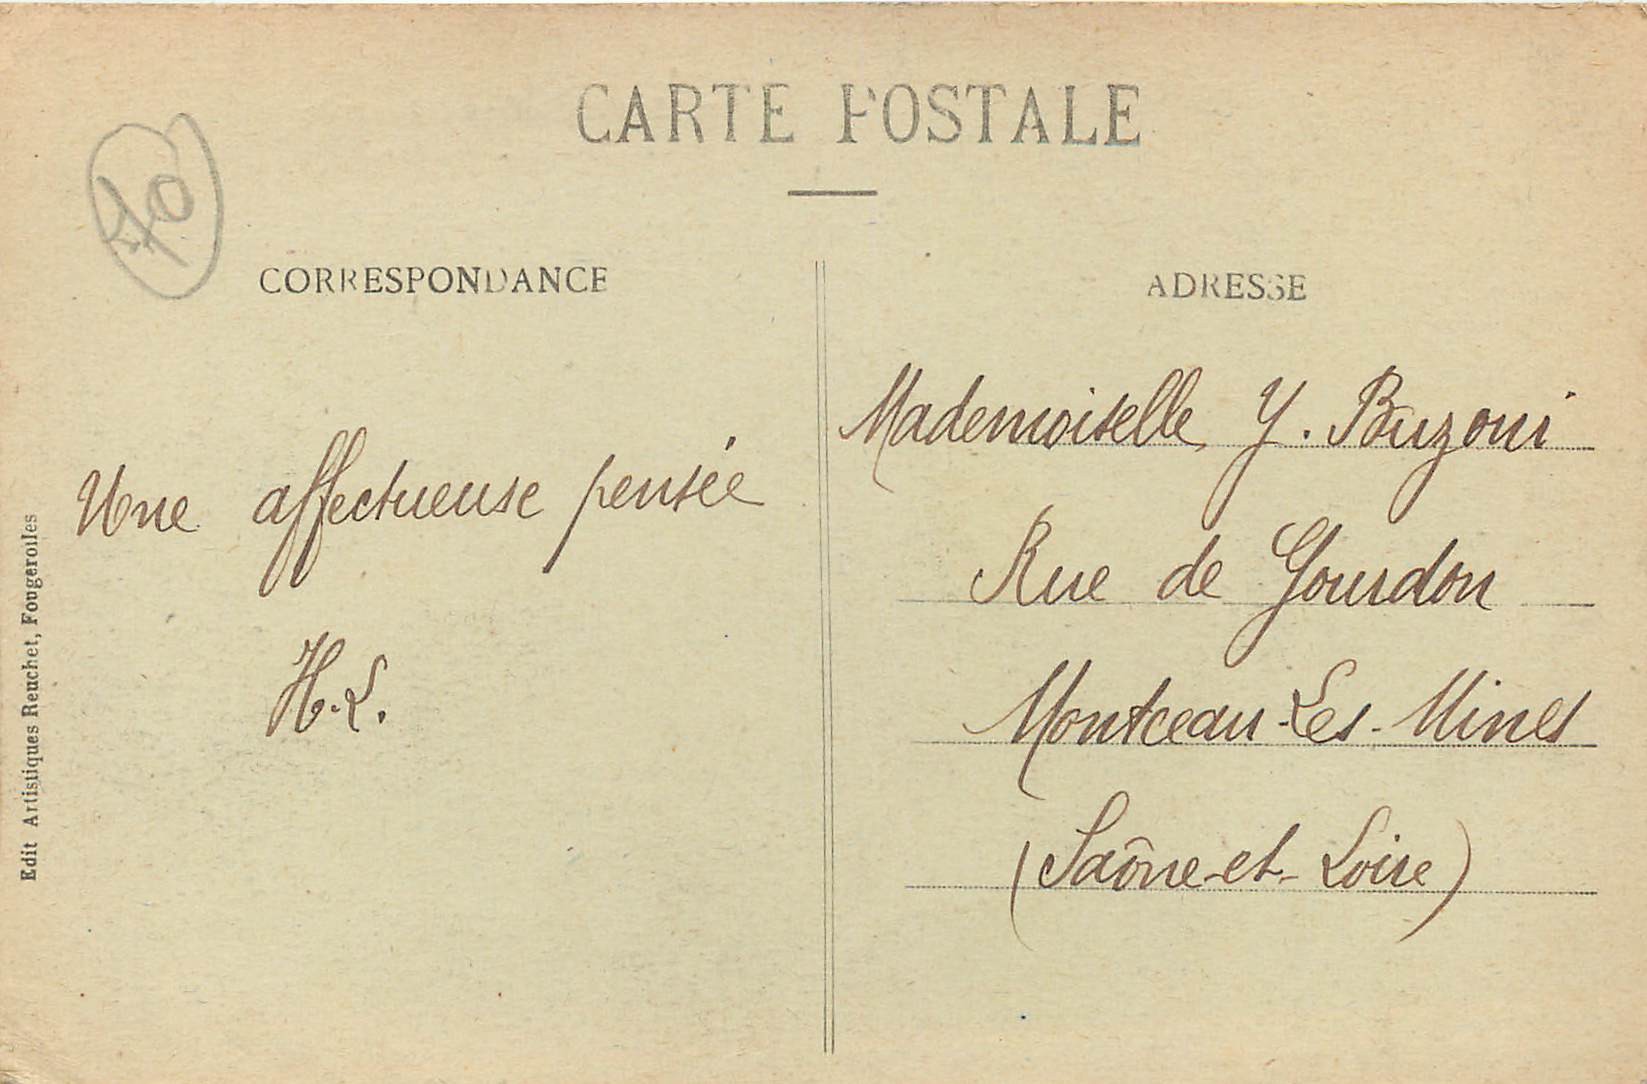 CARTE POSTALE
70
CORRESPONDANCE
Une affectueuse pensée
H.L.
Edit Artistiques Reuchet, Fougerolles
ADRESSE
Mademoiselle Y. Buzoni
Rue de Gourdon
Montceau-Les-Mines
(Saône-et-Loire)